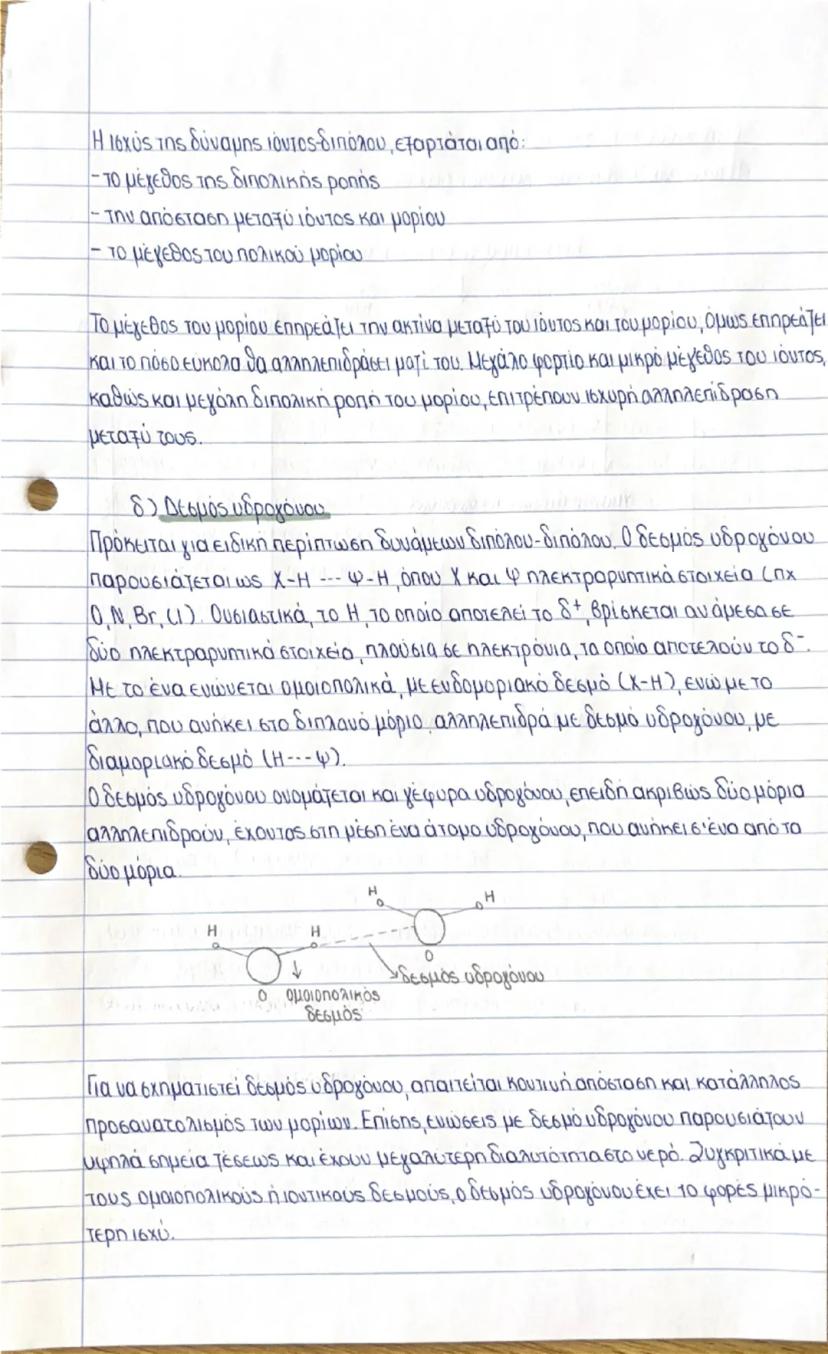 Η ισχύς της δύναμης ιόντος-διπόλου, εξαρτάται από:
- το μέγεθος της διπολικής ροπής
- την απόσταση μεταξύ ιόντος και μορίου
- το μέγεθος του πολικού μορίου
Το μέγεθος του μορίου επηρεάζει την ακτίνα μεταξύ του ιόντος και του μορίου, όμως επηρεάζει
και το πόσο εύκολα θα αλληλεπιδράσει μαζί του. Μεγάλο φορτίο και μικρό μέγεθος του ιόντος,
καθώς και μεγάλη διπολική ροπή του μορίου, επιτρέπουν ισχυρή αλληλεπίδραση
μεταξύ τους.
δ) Δεσμός υδρογόνου
Πρόκειται για ειδική περίπτωση δυνάμεων διπόλου-διπόλου. Ο δεσμός υδρογόνου
παρουσιάζεται ως Χ-Η --- Ψ-Η, όπου Χ και Ψ ηλεκτραρνητικά στοιχεία (πχ
O, N, Br, Cl). Ουσιαστικά, το Η, το οποίο αποτελεί το δ⁺, βρίσκεται ανάμεσα σε
δύο ηλεκτραρνητικά στοιχεία, πλούσια σε ηλεκτρόνια, τα οποία αποτελούν το δ⁻.
Με το ένα ενώνεται ομοιοπολικά, με ενδομοριακό δεσμό (Χ-Η), ενώ με το
άλλο, που ανήκει στο διπλανό μόριο, αλληλεπιδρά με δεσμό υδρογόνου, με
διαμοριακό δεσμό (Η---Ψ).
Ο δεσμός υδρογόνου ονομάζεται και γέφυρα υδρογόνου, επειδή ακριβώς δύο μόρια
αλληλεπιδρούν, έχοντας στη μέση ένα άτομο υδρογόνου, που ανήκει σ' ένα από τα
δύο μόρια.
H H
H H
O
δεσμός υδρογόνου
O ομοιοπολικός
δεσμός
Για να σχηματιστεί δεσμός υδρογόνου, απαιτείται κοντινή απόσταση και κατάλληλος
προσανατολισμός των μορίων. Επίσης, ενώσεις με δεσμό υδρογόνου παρουσιάζουν
υψηλά σημεία ζέσεως και έχουν μεγαλύτερη διαλυτότητα στο νερό. Συγκριτικά με
τους ομοιοπολικούς ή ιοντικούς δεσμούς, ο δεσμός υδρογόνου έχει 10 φορές μικρό-
τερη ισχύ.